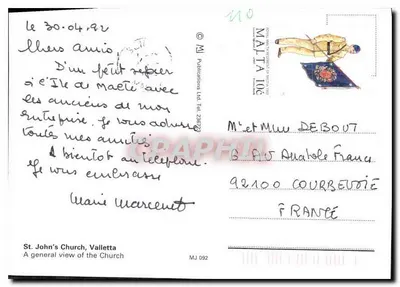 le 30.04.92
Chers Amis
D'un petit séjour
à l'Ile de Malte avec
les anciens de mon
entreprise, je vous adresse
toutes mes amitiés.
A bientôt au téléphone.
Je vous embrasse
Marie
St. John's Church, Valletta
A general view of the Church
MJ 092
© MJ Publications Ltd. Tel.
110
MALTA 10c
Mr et Mme DEBOUT
8 Anatole France
92100 COURBEVOIE
FRANCE